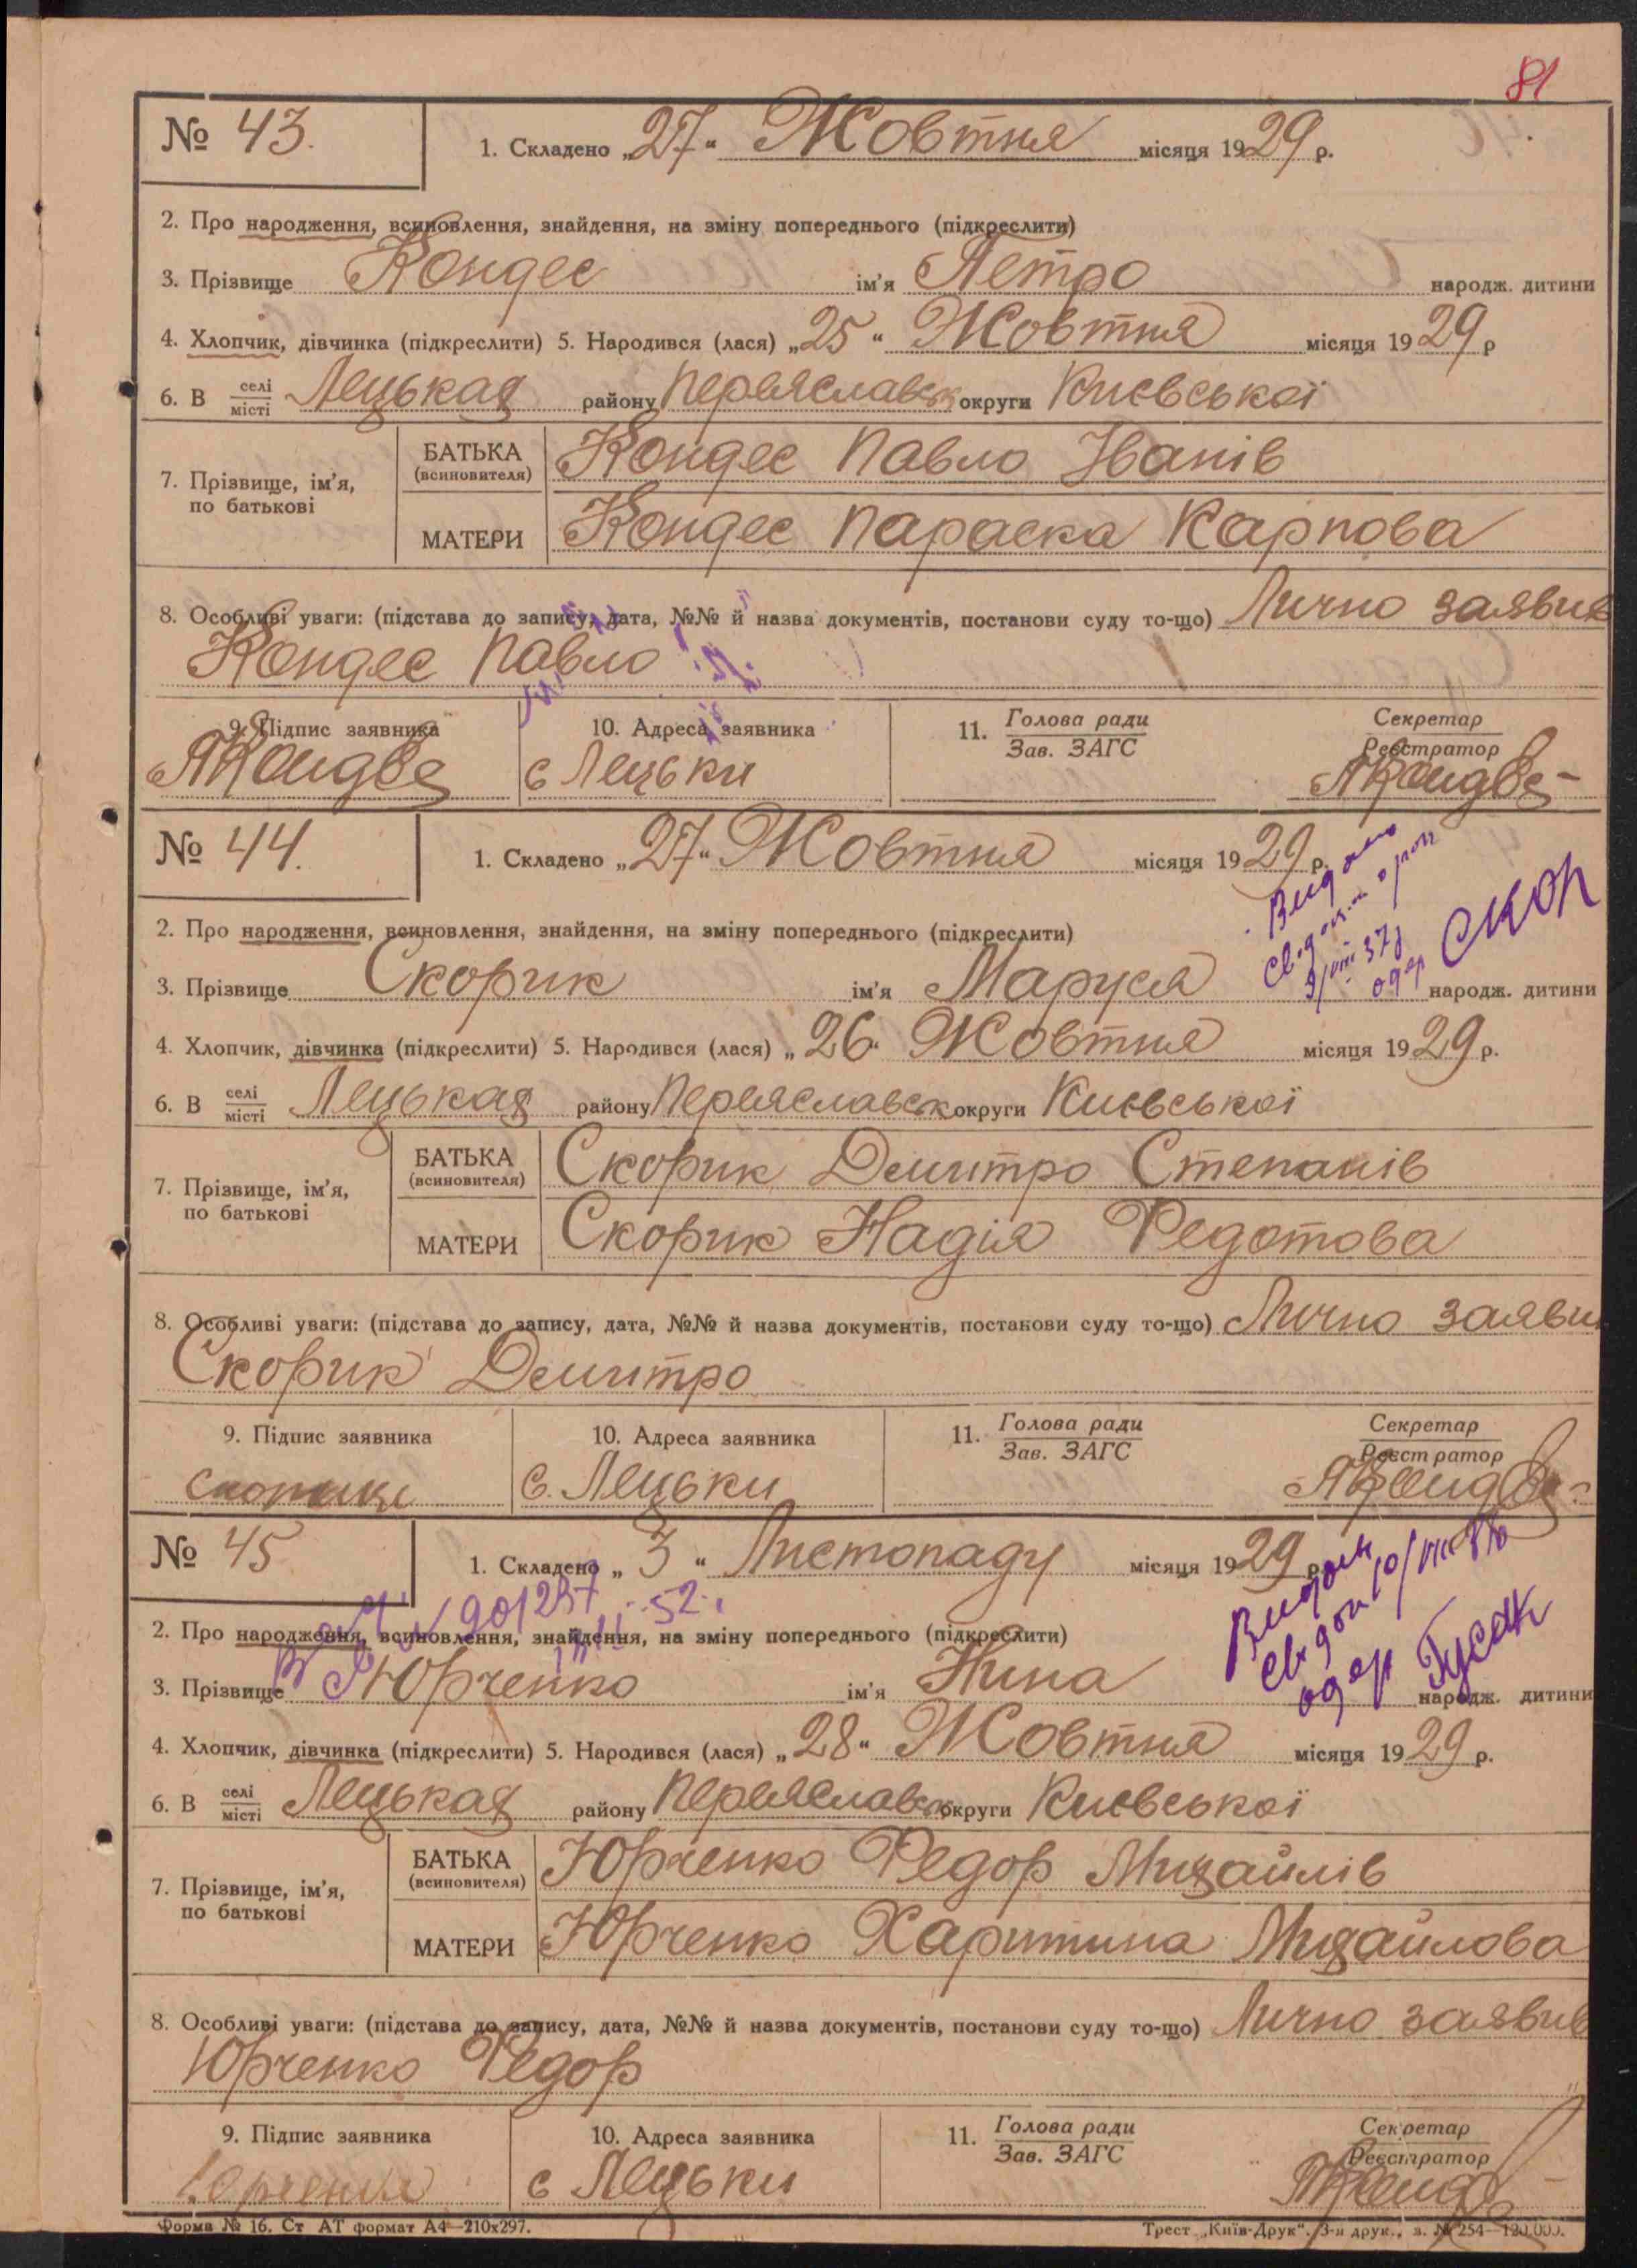 81
№ 43. 1. Складено „27“ Жовтня місяця 1929 р.
2. Про народження, всиновлення, знайдення, на зміну попереднього (підкреслити)
3. Прізвище Кондес ім'я Петро народж. дитини
4. Хлопчик, дівчинка (підкреслити) 5. Народився (лася) „25“ Жовтня місяця 1929 р
6. В селі місті Лецьках району Переяславськ округи Київської
7. Прізвище, ім'я, по батькові
БАТЬКА (всиновителя) Кондес Павло Іванів
МАТЕРИ Кондес Параска Карпова
8. Особливі уваги: (підстава до запису, дата, №№ й назва документів, постанови суду то-що) Лично заявив
Кондес Павло
9. Підпис заявника 10. Адреса заявника 11. Голова ради Зав. ЗАГС Секретар Реєстратор
с Лецьки
№ 44. 1. Складено „27“ Жовтня місяця 1929 р.
Видано
2. Про народження, всиновлення, знайдення, на зміну попереднього (підкреслити)
3. Прізвище Скорик ім'я Маруся народж. дитини
4. Хлопчик, дівчинка (підкреслити) 5. Народився (лася) „26“ Жовтня місяця 1929 р.
6. В селі місті Лецьках району Переяславськ округи Київської
7. Прізвище, ім'я, по батькові
БАТЬКА (всиновителя) Скорик Демитро Степанів
МАТЕРИ Скорик Надія Федотова
8. Особливі уваги: (підстава до запису, дата, №№ й назва документів, постанови суду то-що) Лично заявив
Скорик Демитро
9. Підпис заявника 10. Адреса заявника 11. Голова ради Зав. ЗАГС Секретар Реєстратор
с. Лецьки
№ 45 1. Складено „3“ Листопаду місяця 1929 р.
901257
2. Про народження, всиновлення, знайдення, на зміну попереднього (підкреслити)
3. Прізвище Юрченко ім'я Нина народж. дитини
4. Хлопчик, дівчинка (підкреслити) 5. Народився (лася) „28“ Жовтня місяця 1929 р.
6. В селі місті Лецьках району Переяславськ округи Київської
7. Прізвище, ім'я, по батькові
БАТЬКА (всиновителя) Юрченко Федор Михайлів
МАТЕРИ Юрченко Харитина Михайлова
8. Особливі уваги: (підстава до запису, дата, №№ й назва документів, постанови суду то-що) Лично заявив
Юрченко Федор
9. Підпис заявника 10. Адреса заявника 11. Голова ради Зав. ЗАГС Секретар Реєстратор
с Лецьки
Форма № 16. Ст АТ формат А4—210х297. Трест „Київ-Друк“. 3-я друк., з. № 254—120.000.